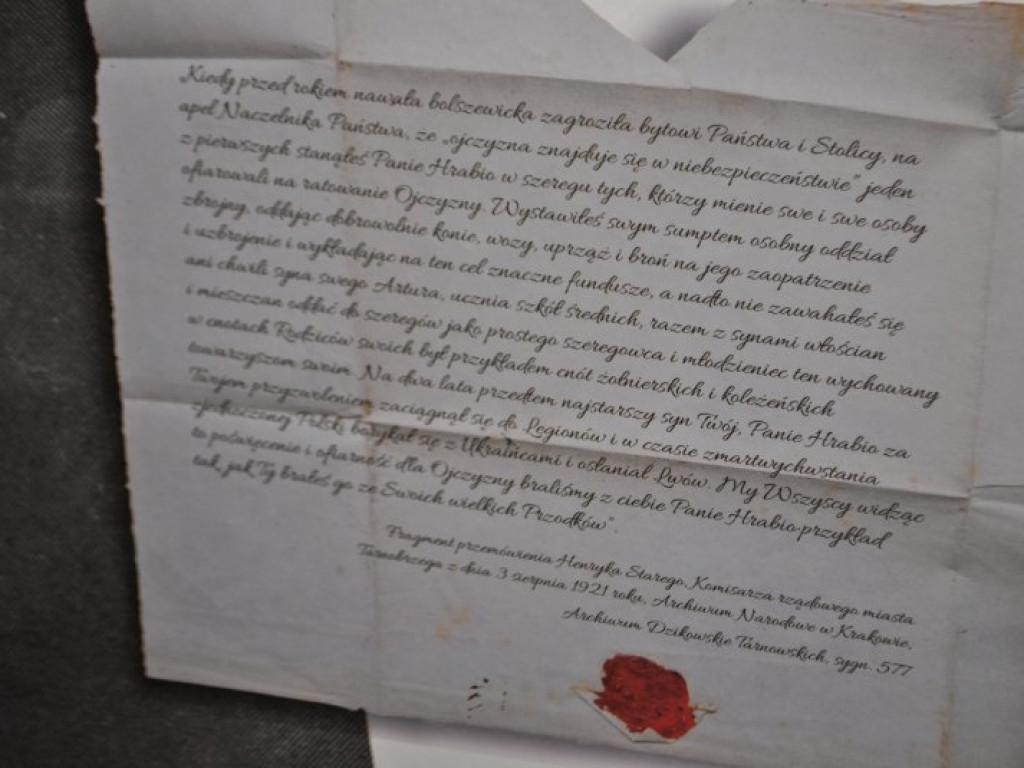 Kiedy przed rokiem nawała bolszewicka zagroziła bytowi Państwa i Stolicy, na
apel Naczelnika Państwa, że „ojczyzna znajduje się w niebezpieczeństwie" jeden
z pierwszych stanąłeś Panie Hrabio w szeregu tych, którzy mienie swe i swe osoby
ofiarowali na ratowanie Ojczyzny. Wystawiłeś swym sumptem osobny oddział
zbrojny, oddając dobrowolnie konie, wozy, uprząż i broń na jego zaopatrzenie
i uzbrojenie i wykładając na ten cel znaczne fundusze, a nadto nie zawahałeś się
ani chwili syna swego Artura, ucznia szkół średnich, razem z synami włościan
i mieszczan oddać do szeregów jako prostego szeregowca i młodzieniec ten wychowany
w cnotach Rodziców swoich był przykładem cnót żołnierskich i koleżeńskich
towarzyszom swoim. Na dwa lata przedtem najstarszy syn Twój, Panie Hrabio za
Twojem przyzwoleniem zaciągnął się do Legionów i w czasie zmartwychwstania
zjednoczonej Polski borykał się z Ukraińcami i osłaniał Lwów. My Wszyscy widząc
to poświęcenie i ofiarność dla Ojczyzny braliśmy z ciebie Panie Hrabio przykład
tak, jak Ty brałeś go ze Swoich wielkich Przodków".
Fragment przemówienia Henryka Starego, Komisarza rządowego miasta
Tarnobrzega z dnia 3 sierpnia 1921 roku, Archiwum Narodowe w Krakowie,
Archiwum Dzikowskie Tarnowskich, sygn. 577